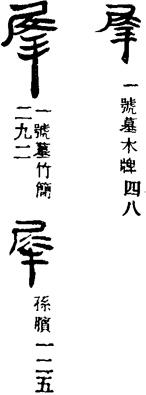 犀
一號墓木牌四八
犀
一號墓竹簡
二九二
犀
孫臏一二五